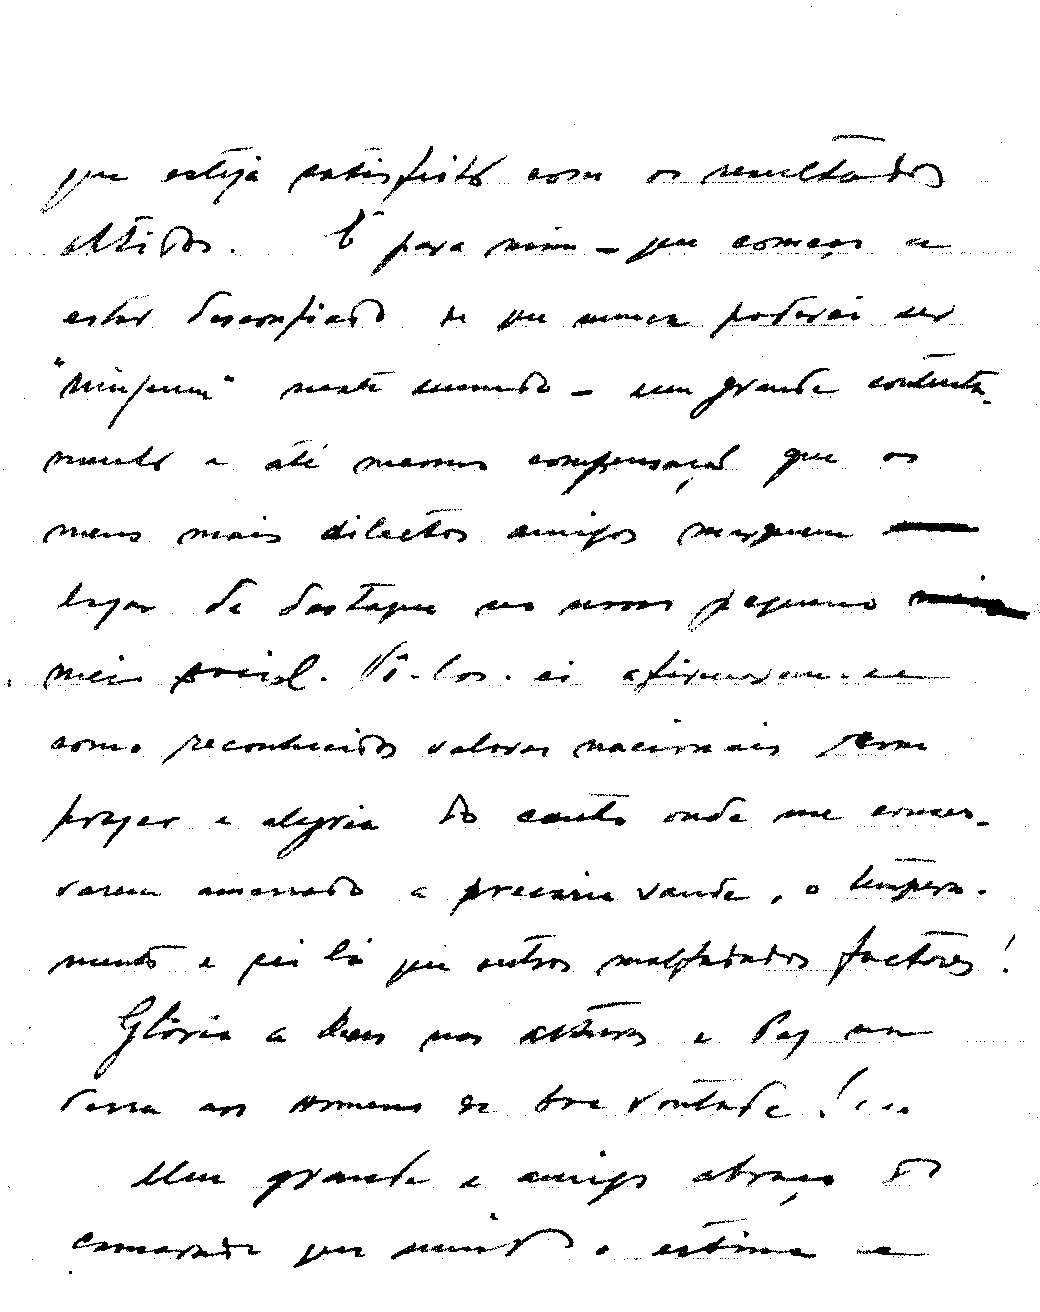 que esteja satisfeito com os resultados
obtidos. É para mim – que começo a
estar desconfiado de que nunca poderei ser
"ninguem" neste mundo – um grande contenta-
mento e até mesmo compensação que os
meus mais dilectos amigos marquem
lugar de destaque no nosso pequeno
meio social. Vê-los-ei afirmarem-se
como reconhecidos valores nacionais com
prazer e alegria do canto onde me conser-
varem amarrado a precaria saude, o tempera-
mento e sei lá que outros malfadados factores!
Glória a Deus nas alturas e Paz na
terra aos homens de boa vontade!...
Um grande e amigo abraço do
camarada que muito o estima e